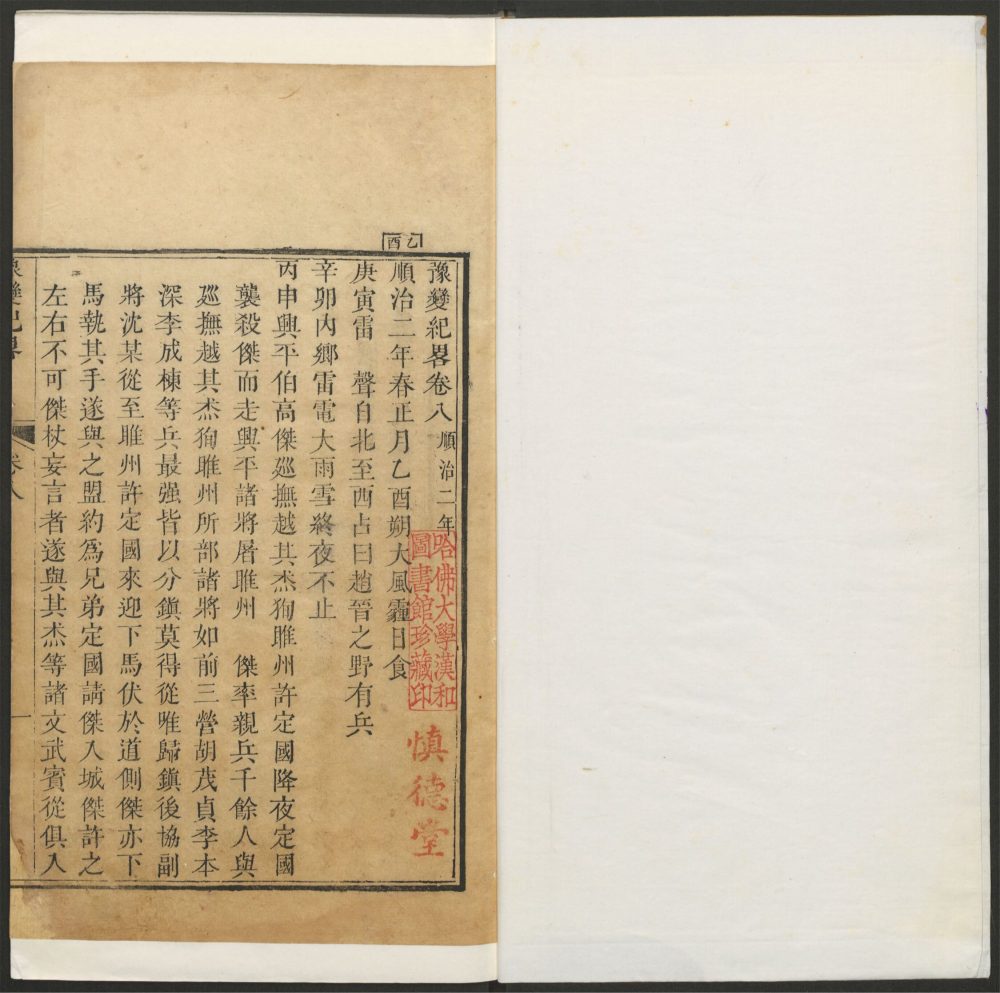 乙酉
豫變紀畧卷八 順治二年
順治二年春正月乙酉朔大風霾日食
庚寅雷 聲自北至西占曰趙晉之野有兵
辛卯內鄉雷電大雨雪終夜不止
丙申興平伯高傑廵撫越其杰狥睢州許定國降夜定國
襲殺傑而走興平諸將屠睢州 傑率親兵千餘人與
廵撫越其杰狥睢州所部諸將如前三營胡茂貞李本
深李成棟等兵最强皆以分鎭莫得從唯歸鎭後協副
將沈某從至睢州許定國來迎下馬伏於道側傑亦下
馬執其手遂與之盟約爲兄弟定國請傑入城傑許之
左右不可傑杖妄言者遂與其杰等諸文武賓從俱入
豫變紀畧 卷八 一
哈佛大學漢和
圖書館珍藏印
慎德堂